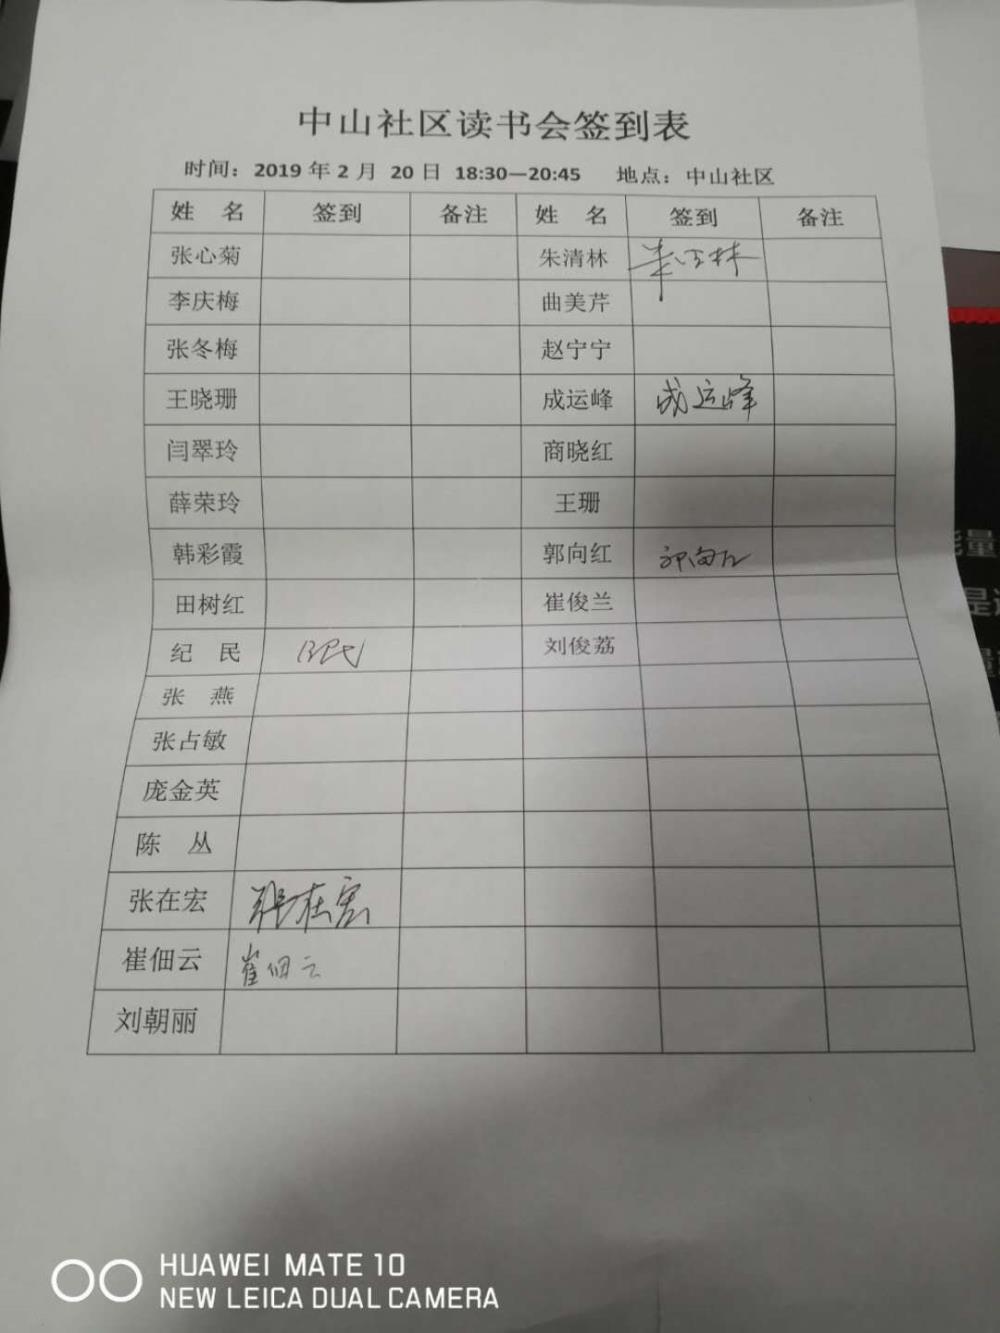 中山社区读书会签到表
时间：2019 年 2 月 20 日 18:30—20:45 地点：中山社区
姓 名 签到 备注 姓 名 签到 备注
张心菊 朱清林 朱清林
李庆梅 曲美芹
张冬梅 赵宁宁
王晓珊 成运峰 成运峰
闫翠玲 商晓红
薛荣玲 王珊
韩彩霞 郭向红 郭向红
田树红 崔俊兰
纪 民 纪民 刘俊荔
张 燕
张占敏
庞金英
陈 丛
张在宏 张在宏
崔佃云 崔佃云
刘朝丽
能量
是
量
HUAWEI MATE 10
NEW LEICA DUAL CAMERA